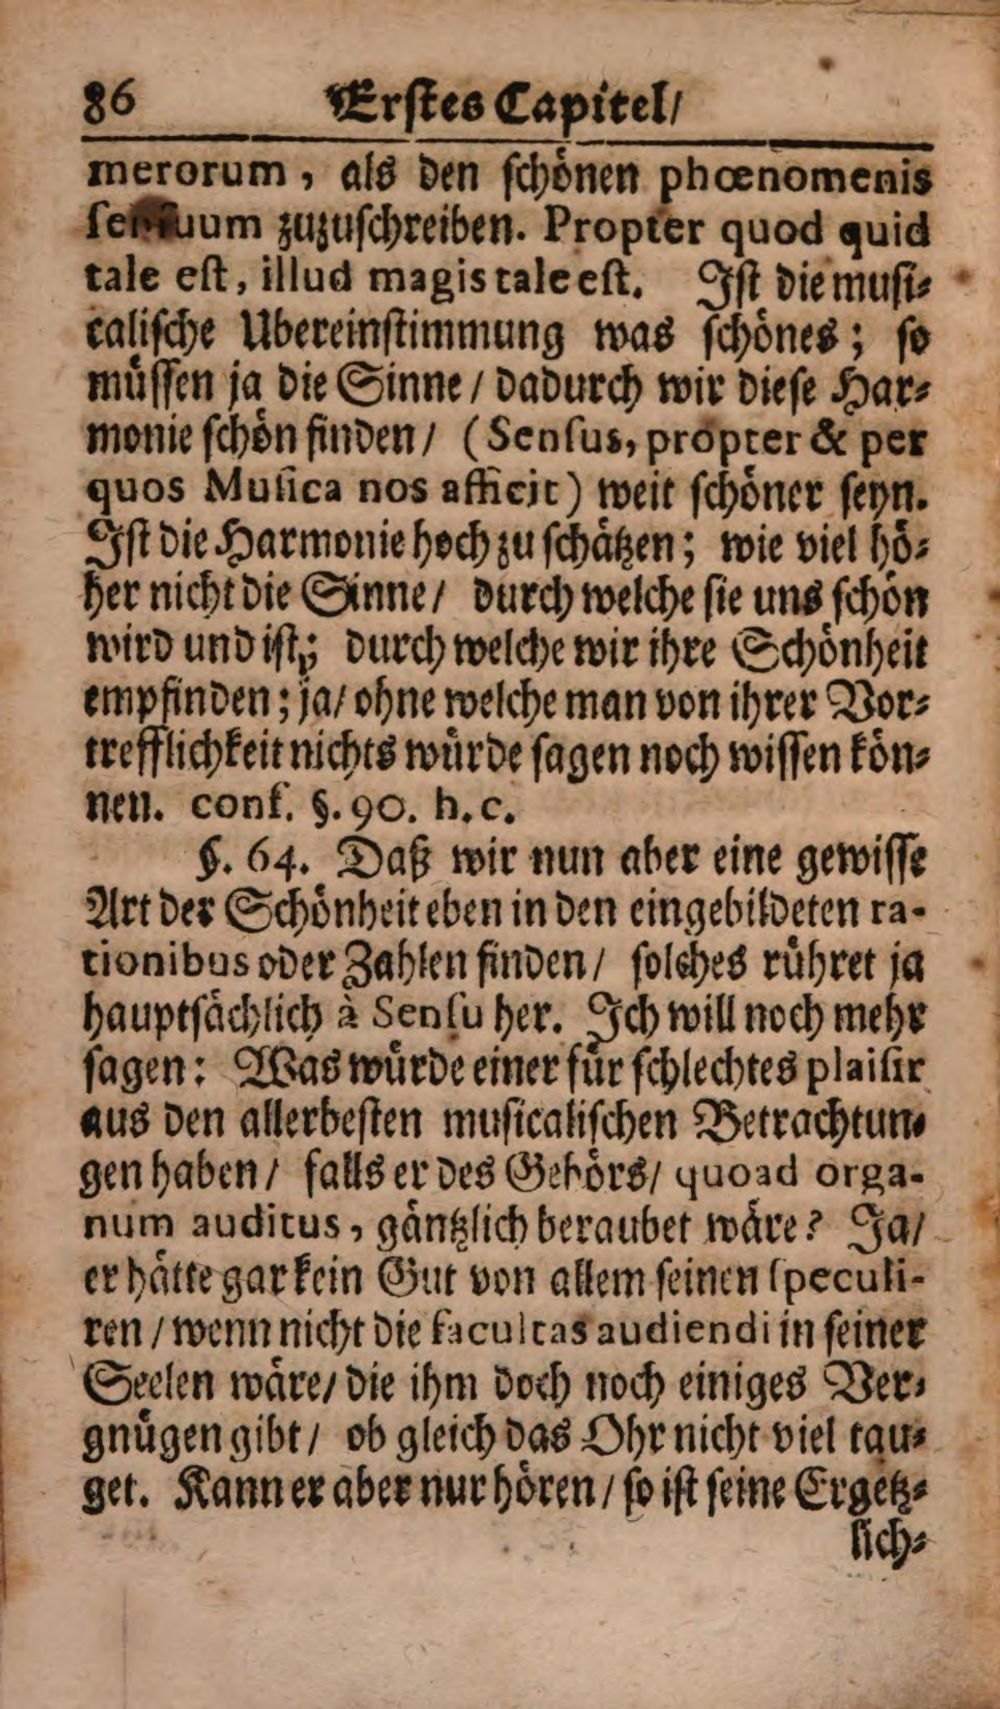 86 Erſtes Capitel/
merorum, als den ſchönen phœnomenis
ſenſuum zuzuſchreiben. Propter quod quid
tale eſt, illud magis tale eſt. Iſt die muſi-
caliſche Ubereinſtimmung was ſchönes; ſo
müſſen ja die Sinne / dadurch wir dieſe Har-
monie ſchön finden / (Senſus, propter & per
quos Muſica nos afficit) weit ſchöner ſeyn.
Iſt die Harmonie hoch zu ſchätzen; wie viel hö-
her nicht die Sinne / durch welche ſie uns ſchön
wird und iſt; durch welche wir ihre Schönheit
empfinden; ja / ohne welche man von ihrer Vor-
trefflichkeit nichts würde ſagen noch wiſſen kön-
nen. conf. §. 90. h. c.
§. 64. Daß wir nun aber eine gewiſſe
Art der Schönheit eben in den eingebildeten ra-
tionibus oder Zahlen finden / ſolches rühret ja
hauptſächlich à Senſu her. Ich will noch mehr
ſagen: Was würde einer für ſchlechtes plaiſir
aus den allerbeſten muſicaliſchen Betrachtun-
gen haben / falls er des Gehörs / quoad orga-
num auditus, gäntzlich beraubet wäre? Ja /
er hätte gar kein Gut von allem ſeinen ſpeculi-
ren / wenn nicht die facultas audiendi in ſeiner
Seelen wäre / die ihm doch noch einiges Ver-
gnügen gibt / ob gleich das Ohr nicht viel tau-
get. Kann er aber nur hören / ſo iſt ſeine Ergetz-
lich-